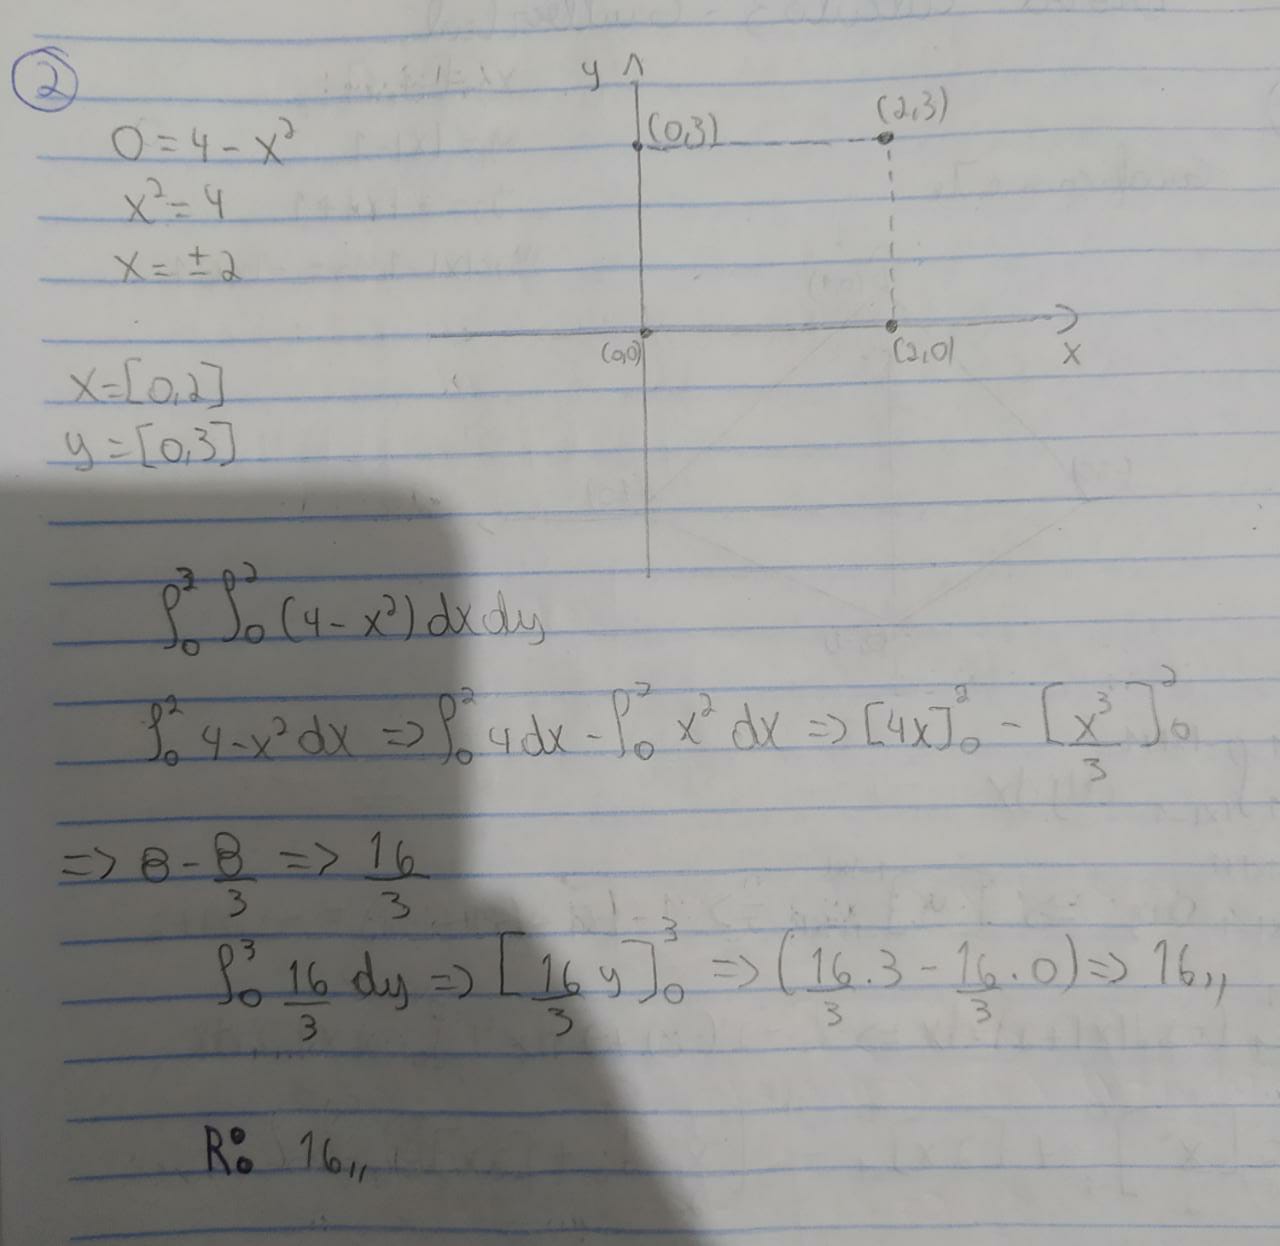 2
0 = 4 - x²
x² = 4
x = ± 2
x = [0,2]
y = [0,3]
y
(0,3)
(2,3)
(0,0)
(2,0)
x
∫₀³ ∫₀² (4 - x²) dx dy
∫₀² 4 - x² dx => ∫₀² 4 dx - ∫₀² x² dx => [4x]₀² - [x³/3]₀²
=> 8 - 8/3 => 16/3
∫₀³ 16/3 dy => [16/3 y]₀³ => (16/3 . 3 - 16/3 . 0) => 16,,
R: 16,,